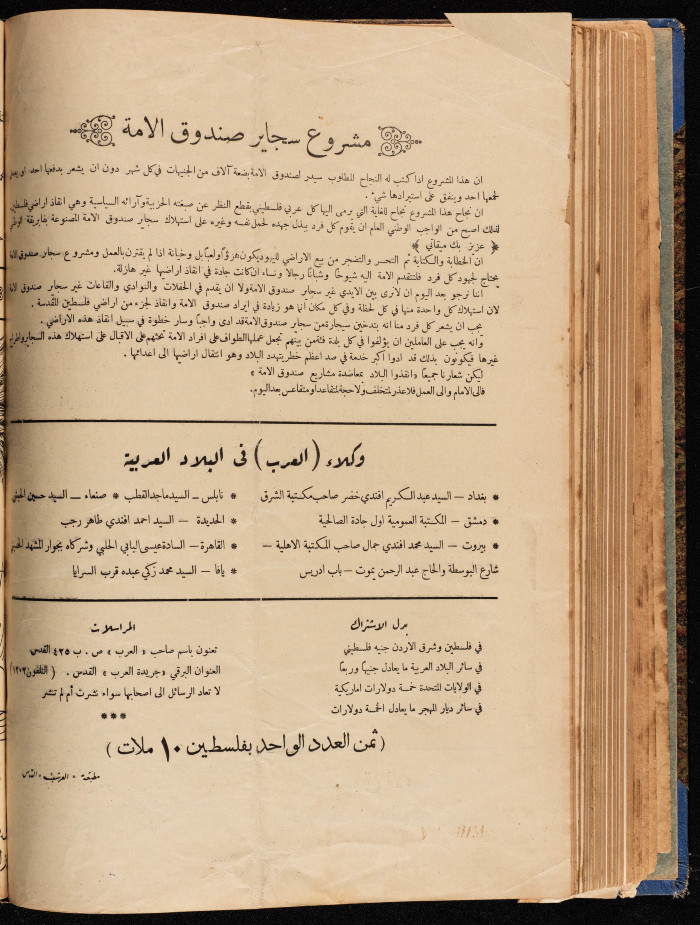 مشروع سجاير صندوق الامة
ان هذا المشروع اذا كتب له النجاح المطلوب سيدر لصندوق الامة بضعة آلاف من الجنيهات في كل شهر دون ان يشعر بدفعها احد او
لجمعها احد وينفق على استيرادها شيء.
ان نجاح هذا المشروع نجاح للغاية التي يرمى اليها كل عربي فلسطيني بقطع النظر عن صبغته الحزبية وآرائه السياسية وهي انقاذ اراضي فلسطين
لذلك اصبح من الواجب الوطني العام ان يقوم كل فرد ببذل جهده لحمل نفسه وغيره على استهلاك سجاير صندوق الامة المصنوعة بفابريقة الوطني
﴿ عزيز بك ميقاتي ﴾
ان الخطابة والكتابة ثم التحسر والتضجر من بيع الاراضي لليهود يكون هزؤاً ولعباً بل وخيانة اذا لم يقترن بالعمل ومشروع سجاير صندوق الامة
يحتاج لجهود كل فرد فلتتقدم الامة اليه شيوخاً وشباناً رجالا ونساء ان كانت جادة في انقاذ اراضيها غير هازلة.
اننا نرجو بعد اليوم ان لا نرى بين الايدي غير سجاير صندوق الامة ولا ان يقدم في الحفلات والنوادي والقاعات غير سجاير صندوق الامة
لان استهلاك كل واحدة منها في كل لحظة وفي كل مكان أنما هو زيادة في ايراد صندوق الامة وانقاذ لجزء من اراضي فلسطين المقدسة.
يجب ان يشعر كل فرد منا انه بتدخين سيجارة من سجاير صندوق الامة قد ادى واجباً وسار خطوة في سبيل انقاذ هذه الاراضي.
وانه يجب على العاملين ان يؤلفوا في كل بلدة فئة من بينهم تجعل عملها الطواف على افراد الامة تحثهم على الاقبال على استهلاك هذه السجاير
غيرها فيكونون بذلك قد ادوا اكبر خدمة في صد اعظم خطر يتهدد البلاد وهو انتقال اراضيها الى اعدائها.
ليكن شعارنا جميعاً «انقذوا البلاد بمعاضدة مشاريع صندوق الامة»
فالى الامام والى العمل فلا عذر لمتخلف ولا حجة لمتقاعد او متقاعس بعد اليوم.
وكلاء (العرب) فى البلاد العربية
* بغداد — السيد عبد الكريم افندي خضر صاحب مكتبة الشرق
* دمشق — المكتبة العمومية اول جادة الصالحية
* بيروت — السيد محمد افندي جمال صاحب المكتبة الاهلية —
شارع البوسطة والحاج عبد الرحمن يموت — باب ادريس
* نابلس — السيد ماجد القطب * صنعاء — السيد حسين
* الحديدة — السيد احمد افندي طاهر رجب
* القاهرة — السادة عيسى البابي الحلبي وشركاه بجوار المشهد
* يافا — السيد محمد زكي عبده قرب السرايا
بدل الاشتراك
في فلسطين وشرق الاردن جنيه فلسطيني
في سائر البلاد العربية ما يعادل جنيهاً وربعاً
في الولايات المتحدة خمسة دولارات اماريكية
في سائر ديار المهجر ما يعادل الخمسة دولارات
المراسلات
تعنون باسم صاحب «العرب» ص. ب ٤٢٥ القدس
العنوان البرقي «جريدة العرب» القدس. (التلفون ١٢٠٣)
لا تعاد الرسائل الى اصحابها سواء نشرت أم لم تنشر
***
(ثمن العدد الواحد بفلسطين ١٠ ملات)
مطبعة